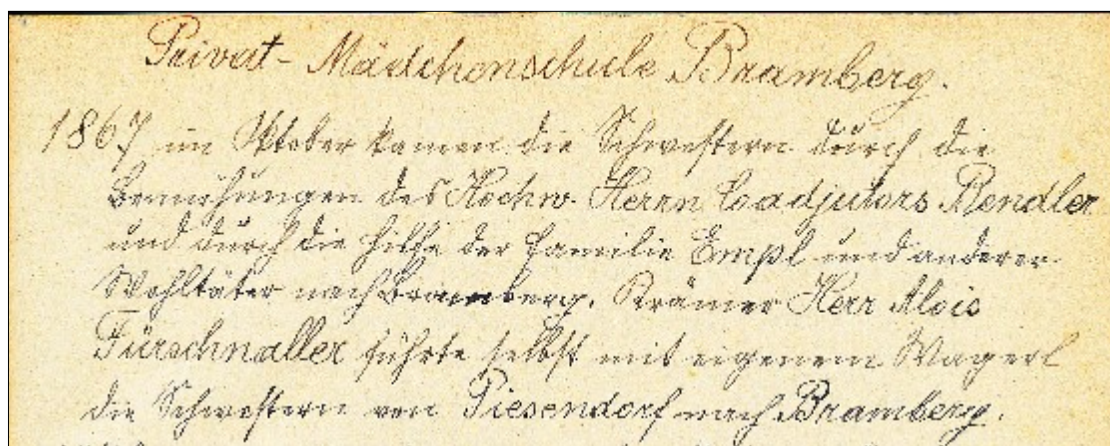 Privat-Mädchenschule Bramberg.
1867 im Oktober kamen die Schwestern durch die
Bemühungen des Hochw. Herrn Coadjutors Rendler
und durch die Hilfe der Familie Empl und anderer
Wohltäter nach Bramberg. Krämer Herr Alois
Fürschnaller führte selbst mit eigenem Wagerl
die Schwestern von Piesendorf nach Bramberg.